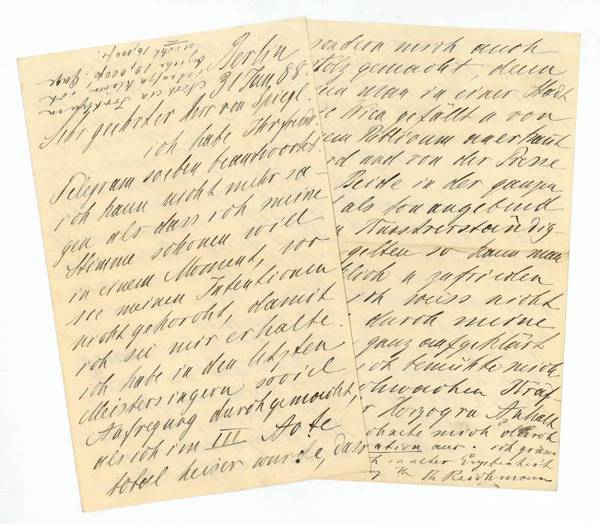 Berlin
31 Jan. 88.
Sehr geehrter Herr von Spiegl.
ich habe Ihr
Telegram soeben beantwortet
ich kann nicht mehr sa-
gen als dass ich meine
Stimme schonen will
in einem Moment, wo
sie meinen Intentionen
nicht gehorcht, damit
ich sie mir erhalte.
ich habe in den letzten
Meistersingern soviel
Aufregung durchgemacht,
als ich im III Acte
total heiser wurde, dass
sondern mich auch
stolz gemacht, denn
man in einer Stadt
Wien gefällt u von
Publicum anerkannt
rd und von der Presse
Beide in der ganzen
als tonangebend
Kunstverständig-
gelten so kann man
lich u zufrieden
ich weiss nicht
durch meine
ganz aufgeklärt
ich bemühte mich
schwachen Kräf-
r Herzogra Anhalt
halte mich durch
ation aus. ich
in alter Ergebenheit
Ihr Th Reichmann